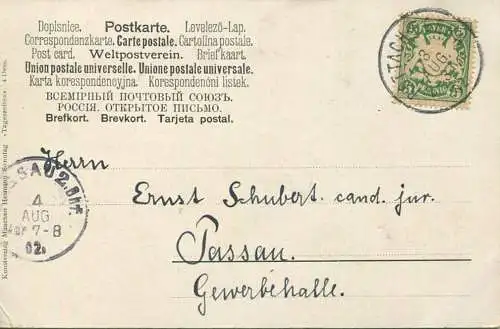 Dopisnice. Postkarte. Levelező-Lap.
Correspondenzkarte. Carte postale. Cartolina postale.
Post card. Weltpostverein. Briefkaart.
Union postale universelle. Unione postale universale.
Karta korespondencyjna. Korespondenční lístek.
ВСЕМІРНЫЙ ПОЧТОВЫЙ СОЮЗЪ.
РОССІЯ. ОТКРЫТОЕ ПИСЬМО.
Brefkort. Brevkort. Tarjeta postal.
Herrn
Ernst Schubert cand. jur.
Passau.
Gewerbehalle.
SSAU 2. Bhf.
4
AUG
7-8
02.
AUG
BAYERN